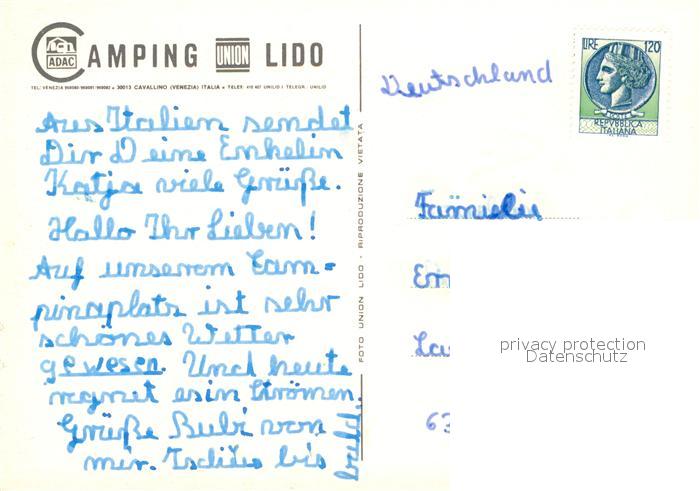 ADAC
CAMPING UNION LIDO
TEL: VENEZIA 968080/968081/968082 • 30013 CAVALLINO (VENEZIA) ITALIA • TELEX: 410 407 UNILIO I TELEGR.: UNILIO
Aus Italien sendet
Dir Deine Enkelin
Katja viele Grüße.
Hallo Ihr Lieben!
Auf unserem Cam=
pinaplatz ist sehr
schönes Wetter
gewesen. Und heute
regnet es in Strömen.
Grüße Bubi von
mir. Tschüs bis
bald.
FOTO UNION LIDO - RIPRODUZIONE VIETATA
LIRE 120
REPVBBLICA
ITALIANA
Deutschland
Familie
Em
La
63
privacy protection
Datenschutz